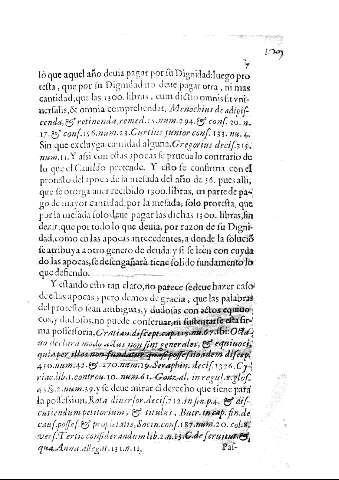 7
lo que aquel año deuia pagar por su Dignidad: luego pro
testa, que por su Dignidad no deue pagar otra, ni mas
cantidad, que las 1300. libras, cum dictio omnis sit vni-
uersalis, & omnia comprehendat, Menochius de adipis-
cenda, & retinenda, remed. 15. num. 294. & cons. 20. n.
17. & cons. 156. num. 23. Curtius junior cons. 133. nu. 4.
Sin que excluya cantidad alguna, Gregorius decis. 315.
num. 11. Y assi con estas apocas se prueua lo contrario de
lo que el Cauildo pretende. Y esto se confirma con el
protesto del apoca de la mesada del año de 56. pues alli,
que se otorga auer recibido 1300. libras, in parte de pa-
go de mayor cantidad, por la mesada, solo protesta, que
por la mesada solo deue pagar las dichas 1300. libras, sin
dezir, que por todo lo que deuia, por razon de su Digni-
dad, como en las apocas antecedentes, a donde la solució
se atribuya a otro genero de deuda, y si se leen con cuyda
do las apocas, se desengañará tiene solido fundamento lo
que defiendo.
Y estando esto tan claro, no parece se deue hazer caso
de estas apocas; pero demos de gracia, que las palabras
del protesto sean ambiguas, y dudosas con actos equiuo-
cos, y dudosos, no puede conseruar, ni sustentarse esta fir-
ma possessoria, Gratian. discept. cap.
no declara modo
quia per illos non fundatur quasi possessio idem discep.
430. num. 42. & 270. num. 29. Seraphin. decis. 1326. Cy-
riac. lib. 1. controu. 10. num. 61. Gonzal. in regul. 8. glos.
45. § 2. num. 39. y se deue mirar el derecho que tiene para
la possession, Rota diuersor. decis. 712. in fin. p. 4. & dis-
cutiendum petitorium, & titulus, Butr. in cap. fin. de
caus. posses. & proprietatis, Socin. cons. 187. num. 20. col. 8.
vers. Tertio considerandum lib. 2. n. 13. C. de seruitut. &
qua Anna allegat. 131. n. 12.